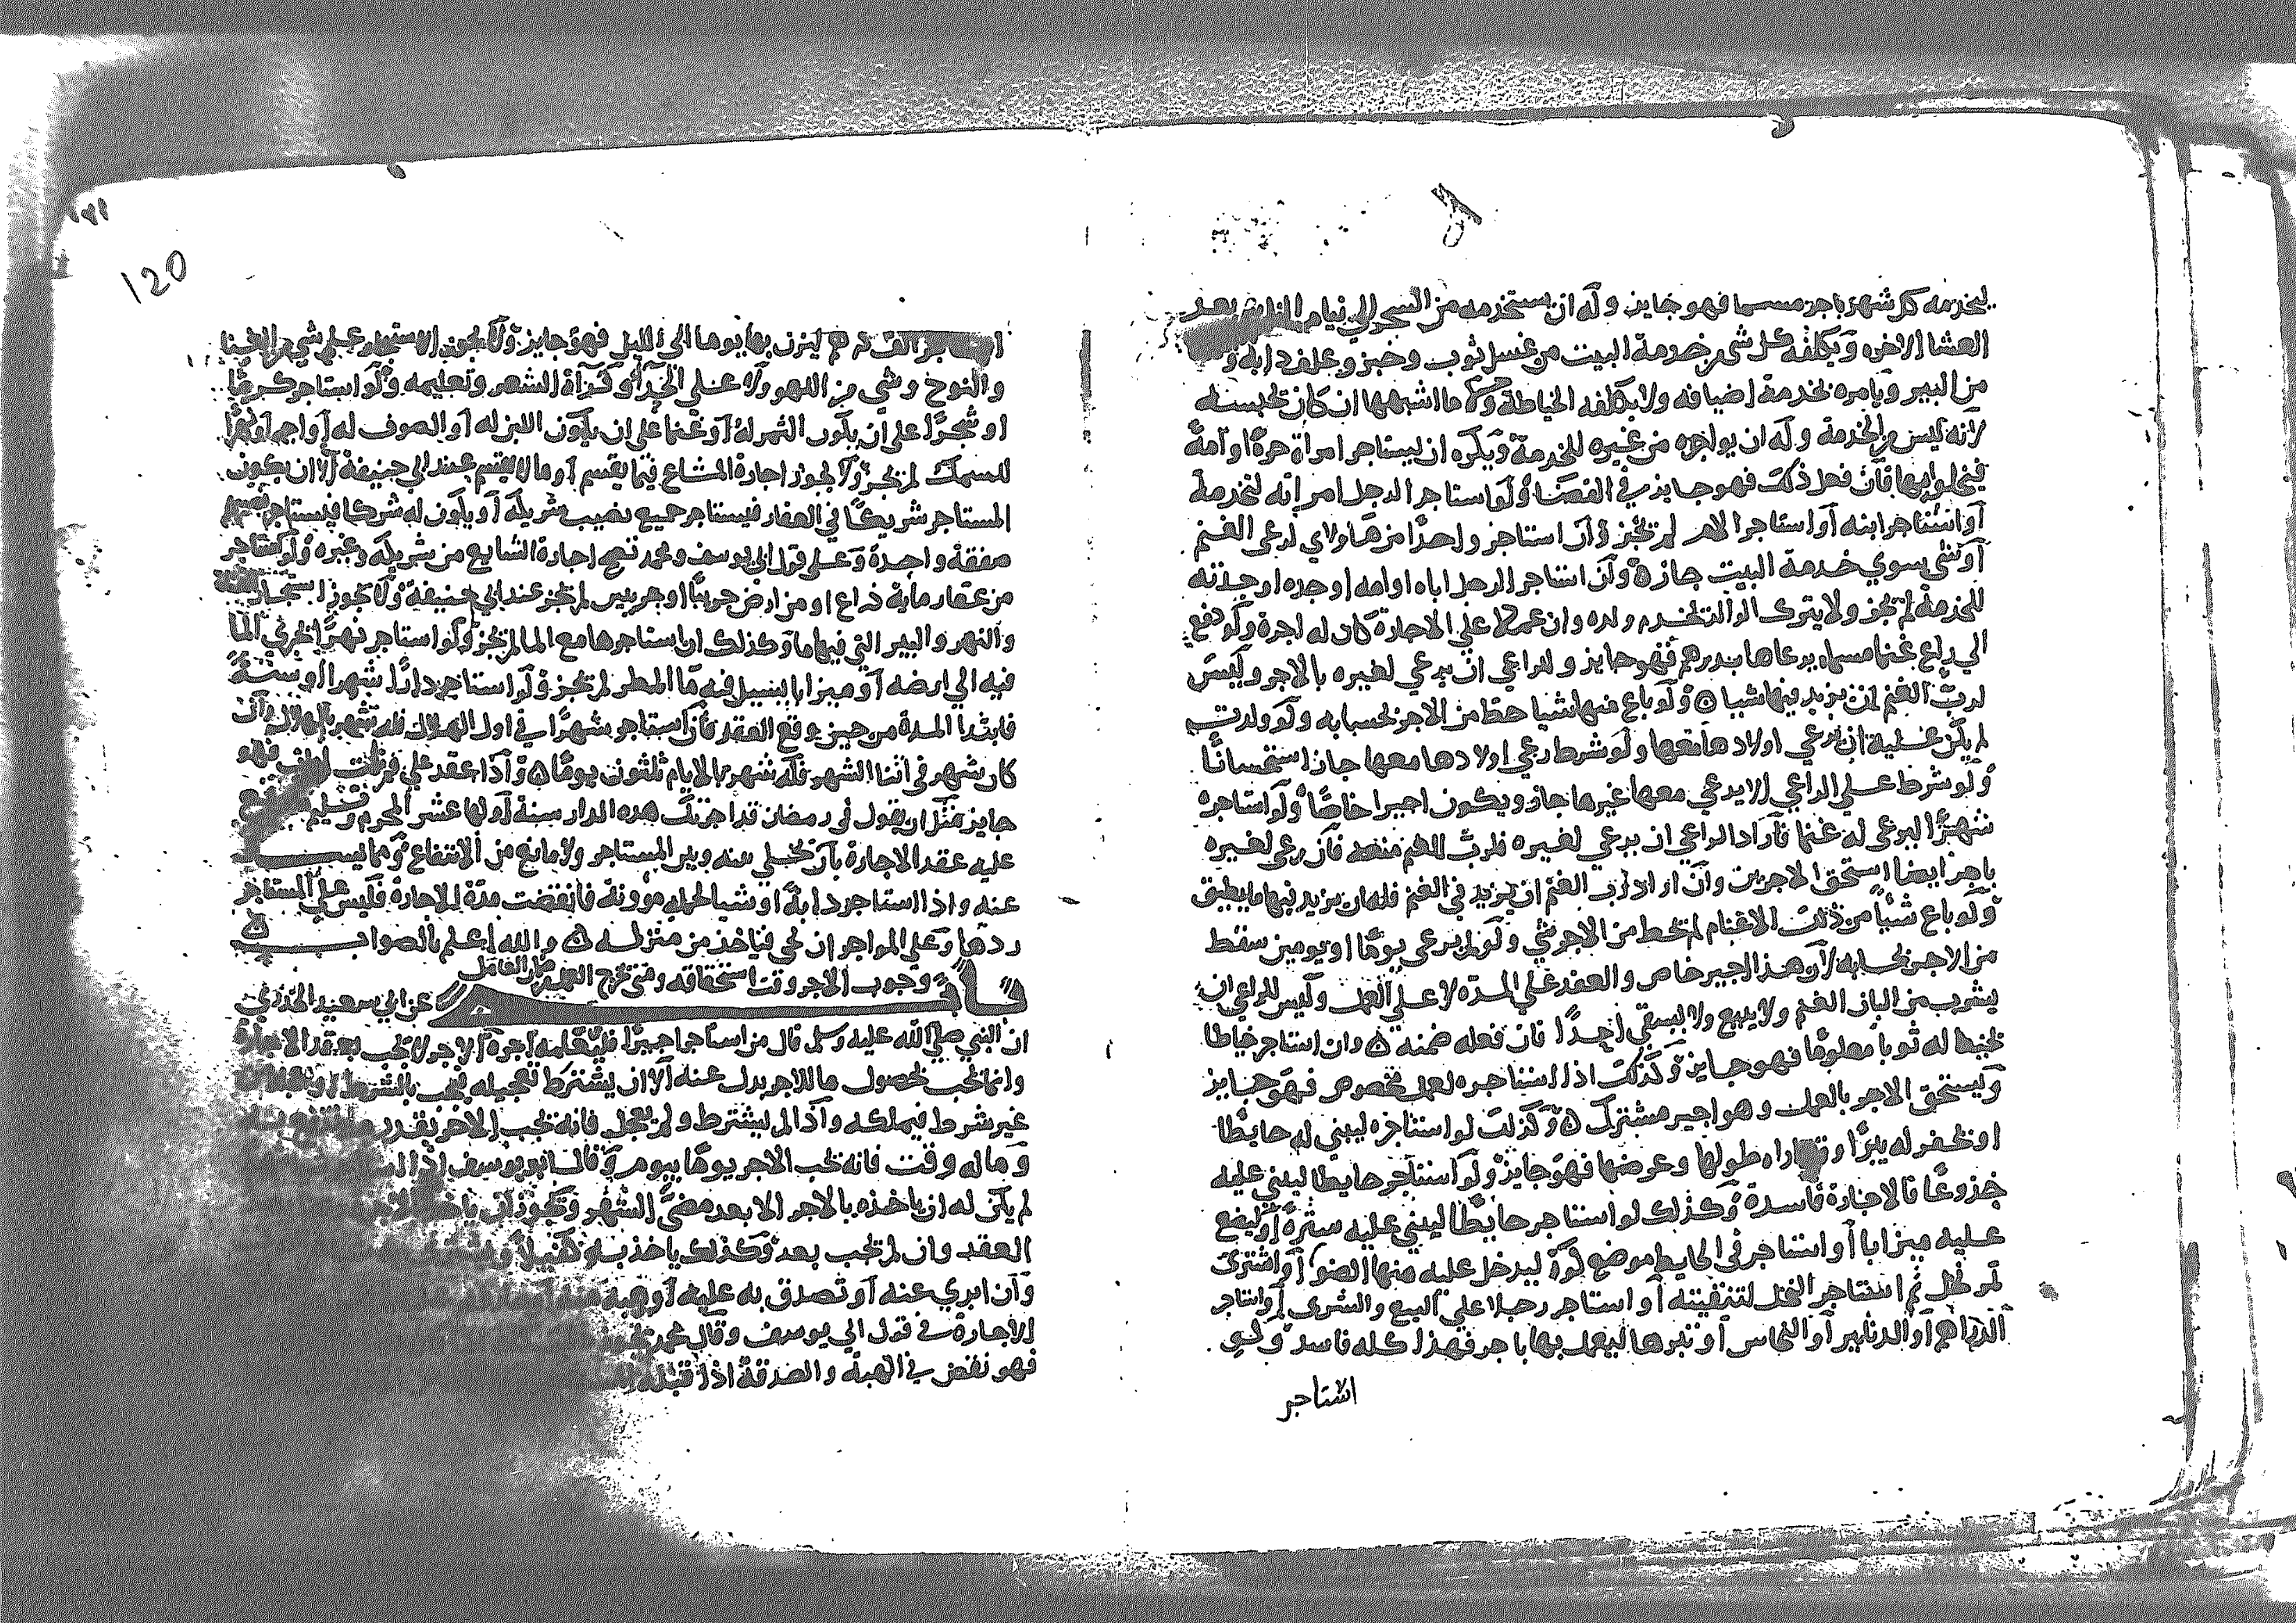 ليخدمه كل شهر باجر مسما فهو جايز وله ان يستخدمه من السحر الي نيام الناس بعد
العشا الاخره ويكلفه كل شي من خدمة البيت من غسل ثوب وخبز وعلف دابة و
من البير ويامره بخدمة اضيافه ولا يكلفه الخياطة وما اشبهها ان كان يحبسنه
لانه ليس من الخدمة وله ان يواجره من غيره للخدمة ويكره ان يستاجر امراة حرة او امة
فيخلوا بها فان فعل ذلك فهو جايز في القضا ولو استاجر الرجل امراته لتخدمه
او استاجر ابنه او استاجر الام لم تجز وان استاجر واحدا من هاولاي لرعي الغنم
او شي سوي خدمة البيت جاز وان استاجر الرجل اباه او امه او جده او جدته
للخدمة لم تجز ولا يترك الوالد تخدم ولده وان عملا علي الاجارة كان له اجرة ولو دفع
الي راع غنما مسماه يرعاها بدرهم فهو جايز وللراعي ان يرعي لغيره بالاجر وليس
لرب الغنم ان يزيد فيها شيا ولو باع منها شيا حط من الاجر بحسابه ولو ولدت
لم يكن عليه ان يرعي اولادها معها ولو شرط رعي اولادها معها جاز استحسانا
ولو شرط علي الراعي الا يرعي معها غيرها جاز ويكون اجيرا خاصا ولو استاجره
شهرا ليرعي له غنما فاراد الراعي ان يرعي لغيره فلرب الغنم منعه فان رعي لغيره
باجر ايضا استحق الاجرين وان اراد رب الغنم ان يزيد في الغنم فله ان يزيد فيها ما يطيق
ولو باع شيا من ذلك الاغنام لم تحط من الاجر شي ولو لم يرعي يوما او يومين سقط
من الاجر بحسابه لان هذا اجير خاص والعقد علي المدة لا علي العمل وليس للراعي ان
يشرب من البان الغنم ولا يبيع ولا يسقي احدا فان فعله ضمنه وان استاجر خياطا
يخيط له ثوبا معلوما فهو جايز وكذلك اذا استاجره لعمل مخصوص فهو جايز
ويستحق الاجر بالعمل وهو اجير مشترك وكذلك لو استاجره ليبني له حايطا
او يحفر له بيرا و اراه طولها وعرضها فهو جايز ولو استاجر حايطا ليبني عليه
جذوعا فالاجارة فاسدة وكذلك لو استاجر حايطا ليبني عليه سترة او ليضع
عليه ميزابا او استاجر في الحايط موضع كوة ليدخل عليه منها الضو او اشترى
تمر نخل ثم استاجر النخل لتنقيته او استاجر رجلا علي البيع والشرى او استاجر
الدراهم او الدنانير او النحاس او تبرها ليعمل بها باجر فهذا كله فاسد ولو
استاجر
١٢١
120
لم ليزن بها يوما الي الليل فهو جايز ولا يجوز الاستيجار علي شي من الغنا
والنوح وشي من اللهو ولا علي الحدا وقراة الشعر وتعليمه ولو استاجر كرما
او شجرا علي ان يكون الثمر له او غنما علي ان يكون اللبن له او الصوف له او اجمه او نهرا
للسمك لم تجز ولا يجوز اجارة المشاع فيما يقسم او ما لا يقسم عند ابي حنيفة الا ان يكون
المستاجر شريكا في العقار فيستاجر جميع نصيب شريكه او يكون له شركا فيستاجر
صفقة واحدة وعلي قول ابي يوسف ومحمد تصح اجارة الشايع من شريكه وغيره ولو استاجر
من عقار ماية ذراع او من ارض جريبا او جريبين لم تجز عند ابي حنيفة ولا يجوز استيجار
والنهر والبير التي فيها ما وكذلك ان استاجرها مع الما لم تجز ولو استاجر نهرا ليجري الما
فيه الي ارضه او ميزابا ليسيل فيه ما المطر لم تجز ولو استاجر دارا شهرا او سنة
فابتدا المدة من حين وقع العقد فان استاجر شهرا في اول الهلال فله شهر بالهلال وان
كان شهر في اثنا الشهر فله شهر بالايام ثلثون يوما واذا عقد علي فهو
جايز مثل ان يقول في رمضان قد اجرتك هذه الدار سنة اولها عشر المحرم وتسليم
عليه عقد الاجارة بان يخلي بينه وبين المستاجر ولا مانع من الانتفاع
عنه واذا استاجر دابة او شيا لحمله موونة فانقضت مدة الاجارة فليس علي المستاجر
ردها وعلي المواجر ان يجي فياخذ من منزله والله اعلم بالصواب
باب وجوب الاجر وقت استحقاقه ومتي يخرج العين من ضمان العامل
عن ابي سعيد الخدري
ان النبي صلي الله عليه وسلم قال من استاجر اجيرا فليعلمه اجره الاجر لا يجب بعقد الاجارة
وانما يجب بحصول ما للاجر بدل عنه الا ان يشترط تعجيله فيجب بالشرط او
غير شرط فيملكه واذا لم يشترط ولم يعجل فانه يجب الاجر بقدر
وما له وقت فانه يجب الاجر يوما بيوم وقال ابو يوسف اذا
لم يكن له ان ياخذه بالاجر الا بعد مضي الشهر ويجوز ان ياخذ
العقد وان لم تجب بعد وكذلك ياخذ به كفيلا
وان ابري عنه او تصدق به عليه او وهبه
الاجارة في قول ابي يوسف وقال محمد
فهو نقض في الهبة والصدقة اذا قبله